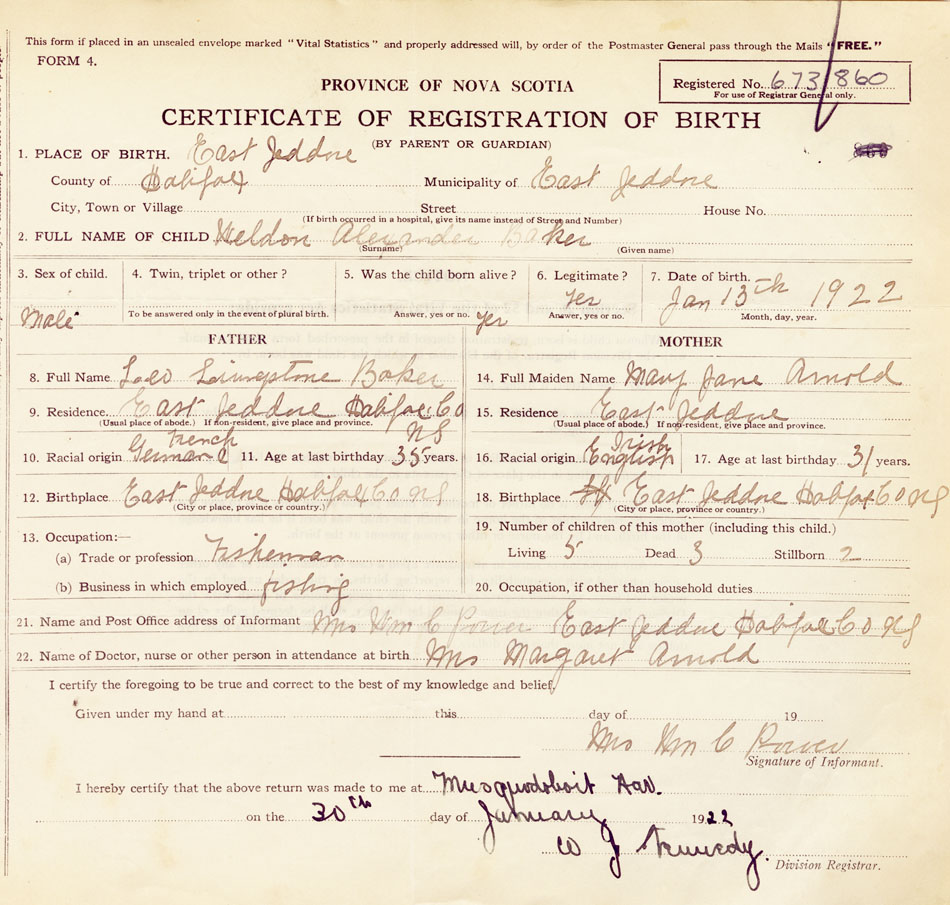 This form if placed in an unsealed envelope marked "Vital Statistics" and properly addressed will, by order of the Postmaster General pass through the Mails "FREE."
FORM 4.
PROVINCE OF NOVA SCOTIA
Registered No. 673/860
For use of Registrar General only.
CERTIFICATE OF REGISTRATION OF BIRTH
(BY PARENT OR GUARDIAN)
1. PLACE OF BIRTH. East Jeddore
County of Halifax Municipality of East Jeddore
City, Town or Village Street House No.
(If birth occurred in a hospital, give its name instead of Street and Number)
2. FULL NAME OF CHILD Weldon Alexander Baker
(Surname) (Given name)
3. Sex of child. 4. Twin, triplet or other? 5. Was the child born alive? 6. Legitimate? 7. Date of birth.
Male Yes Yes Jan 13th 1922
To be answered only in the event of plural birth. Answer, yes or no. Answer, yes or no. Month, day, year.
FATHER MOTHER
8. Full Name Leo Livingstone Baker 14. Full Maiden Name Mary Jane Arnold
9. Residence. East Jeddore Halifax Co NS 15. Residence East Jeddore
(Usual place of abode.) If non-resident, give place and province. (Usual place of abode.) If non-resident, give place and province.
10. Racial origin German French 11. Age at last birthday 35 years. 16. Racial origin English Irish 17. Age at last birthday 31 years.
12. Birthplace East Jeddore Halifax Co NS 18. Birthplace East Jeddore Halifax Co NS
(City or place, province or country.) (City or place, province or country.)
13. Occupation:— 19. Number of children of this mother (including this child.)
(a) Trade or profession Fisherman Living 5 Dead 3 Stillborn 2
(b) Business in which employed fishing 20. Occupation, if other than household duties
21. Name and Post Office address of Informant Mrs Wm C Power East Jeddore Halifax Co NS
22. Name of Doctor, nurse or other person in attendance at birth Mrs Margaret Arnold
I certify the foregoing to be true and correct to the best of my knowledge and belief,
Given under my hand at this day of 19
Mrs Wm C Power
Signature of Informant.
I hereby certify that the above return was made to me at Musquodoboit Har.
on the 30th day of January 1922
W J Kennedy.
Division Registrar.